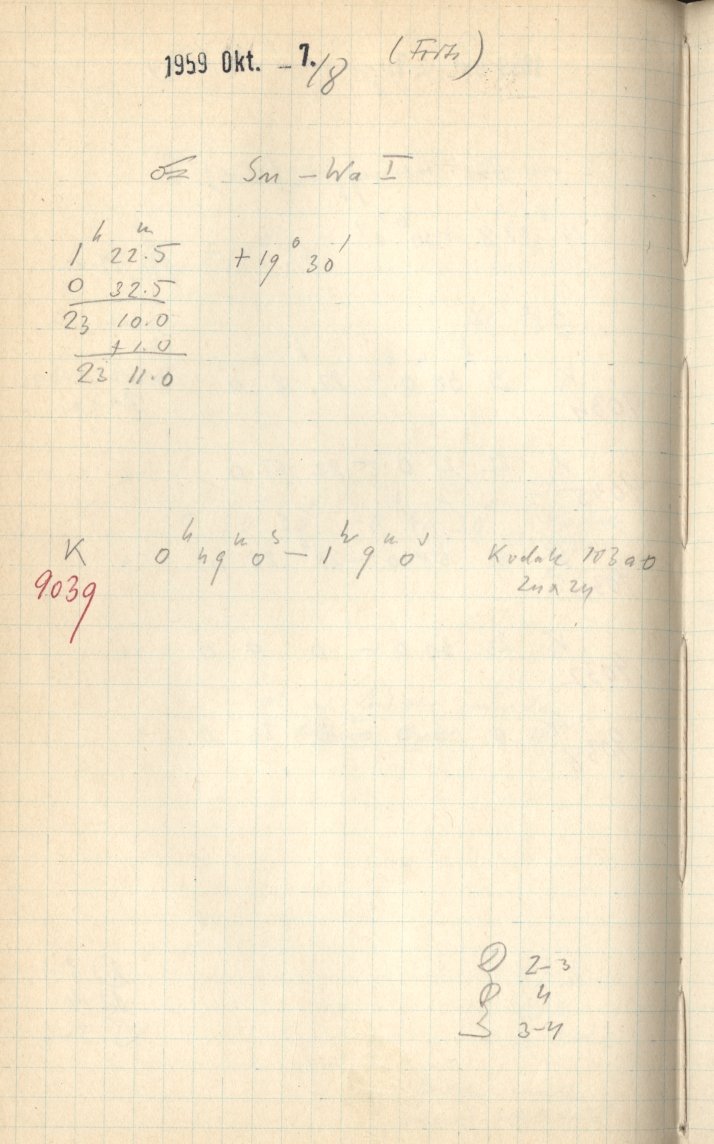 1959 Okt. – 7./8 (Fritz)
Sn – Wa I
1ʰ 22.5ᵐ +19° 30'
0 32.5
23 10.0
+1.0
23 11.0
K 0ʰ 49ᵐ 0ˢ – 1ʰ 9ᵐ 0ˢ Kodak 103a0
9039 24x24
2-3
4
3-4